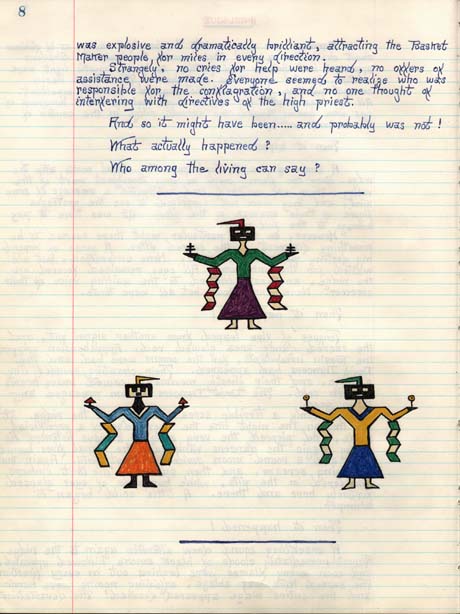 8
was explosive and dramatically brilliant, attracting the Basket
Maker people, for miles in every direction.
Strangely, no cries for help were heard, no offers of
assistance were made. Everyone seemed to realize who was
responsible for the conflagration, and no one thought of
interfering with directives of the high priest.
And so it might have been..... and probably was not !
What actually happened ?
Who among the living can say ?